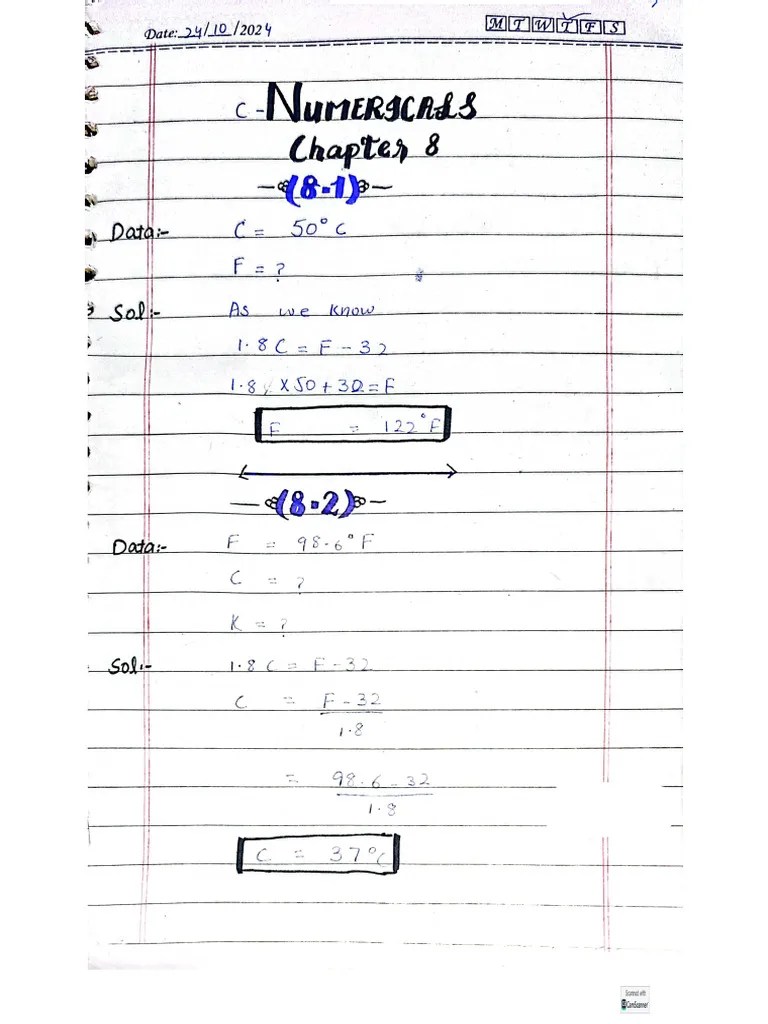 Date: 24/10/2024 M T W T F S
C - NUMERICALS
Chapter 8
(8.1)
Data:- C = 50°C
F = ?
Sol:- As we know
1.8C = F - 32
1.8 X 50 + 32 = F
F = 122°F
(8.2)
Data:- F = 98.6°F
C = ?
K = ?
Sol:- 1.8C = F-32
C = F-32
1.8
= 98.6 - 32
1.8
C = 37°C
Scanned with
CamScanner